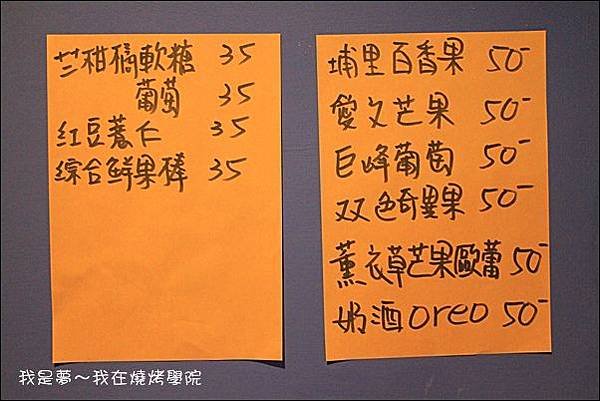 芒柑橘軟糖 35
葡萄 35
紅豆薏仁 35
綜合鮮果棒 35
埔里百香果 50-
愛文芒果 50-
巨峰葡萄 50-
双色奇異果 50-
薰衣草芒果歐蕾 50-
奶酒oreo 50-
我是夢～我在燒烤學院